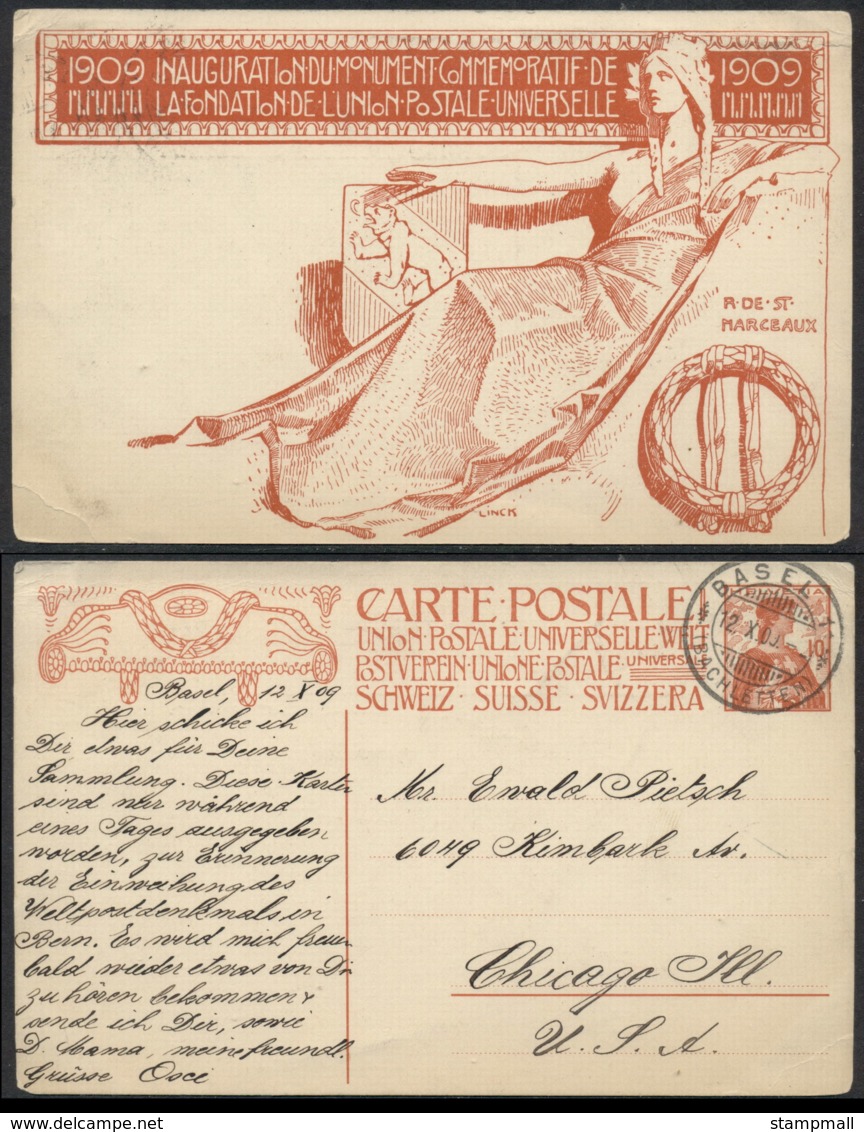 1909 INAUGURATION·DU·MONUMENT·COMMEMORATIF·DE 1909
LA·FONDATION·DE·L'UNION·POSTALE·UNIVERSELLE
R·DE·ST
MARCEAUX
LINCK
CARTE·POSTALE
UNION·POSTALE·UNIVERSELLE·WELT
POSTVEREIN·UNIONE·POSTALE UNIVERS
SCHWEIZ·SUISSE·SVIZZERA
BASEL 1
12.X.09
(BACHLETTEN)
10
Basel, 12 X 09
Hier schicke ich
Dir etwas für Deine
Sammlung. Diese Karten
sind nur während
eines Tages ausgegeben
worden, zur Erinnerung
der Einweihung des
Weltpostdenkmals in
Bern. Es wird mich freuen
bald wieder etwas von Dir
zu hören bekommen &
sende ich Dir, sowie
D. Mama, meine freundl.
Grüsse Osci
Mr. Ewald Pietsch
6049 Kimbark Av.
Chicago Ill.
U. S. A.
stampmall
http://www.delcampe.net